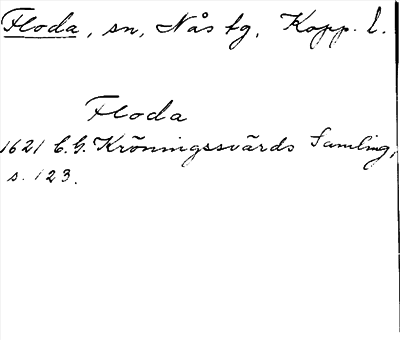 Floda, sn, Nås tg, Kopp. l.
Floda
1621 C.G. Kröningssvärds Samling,
s. 123.